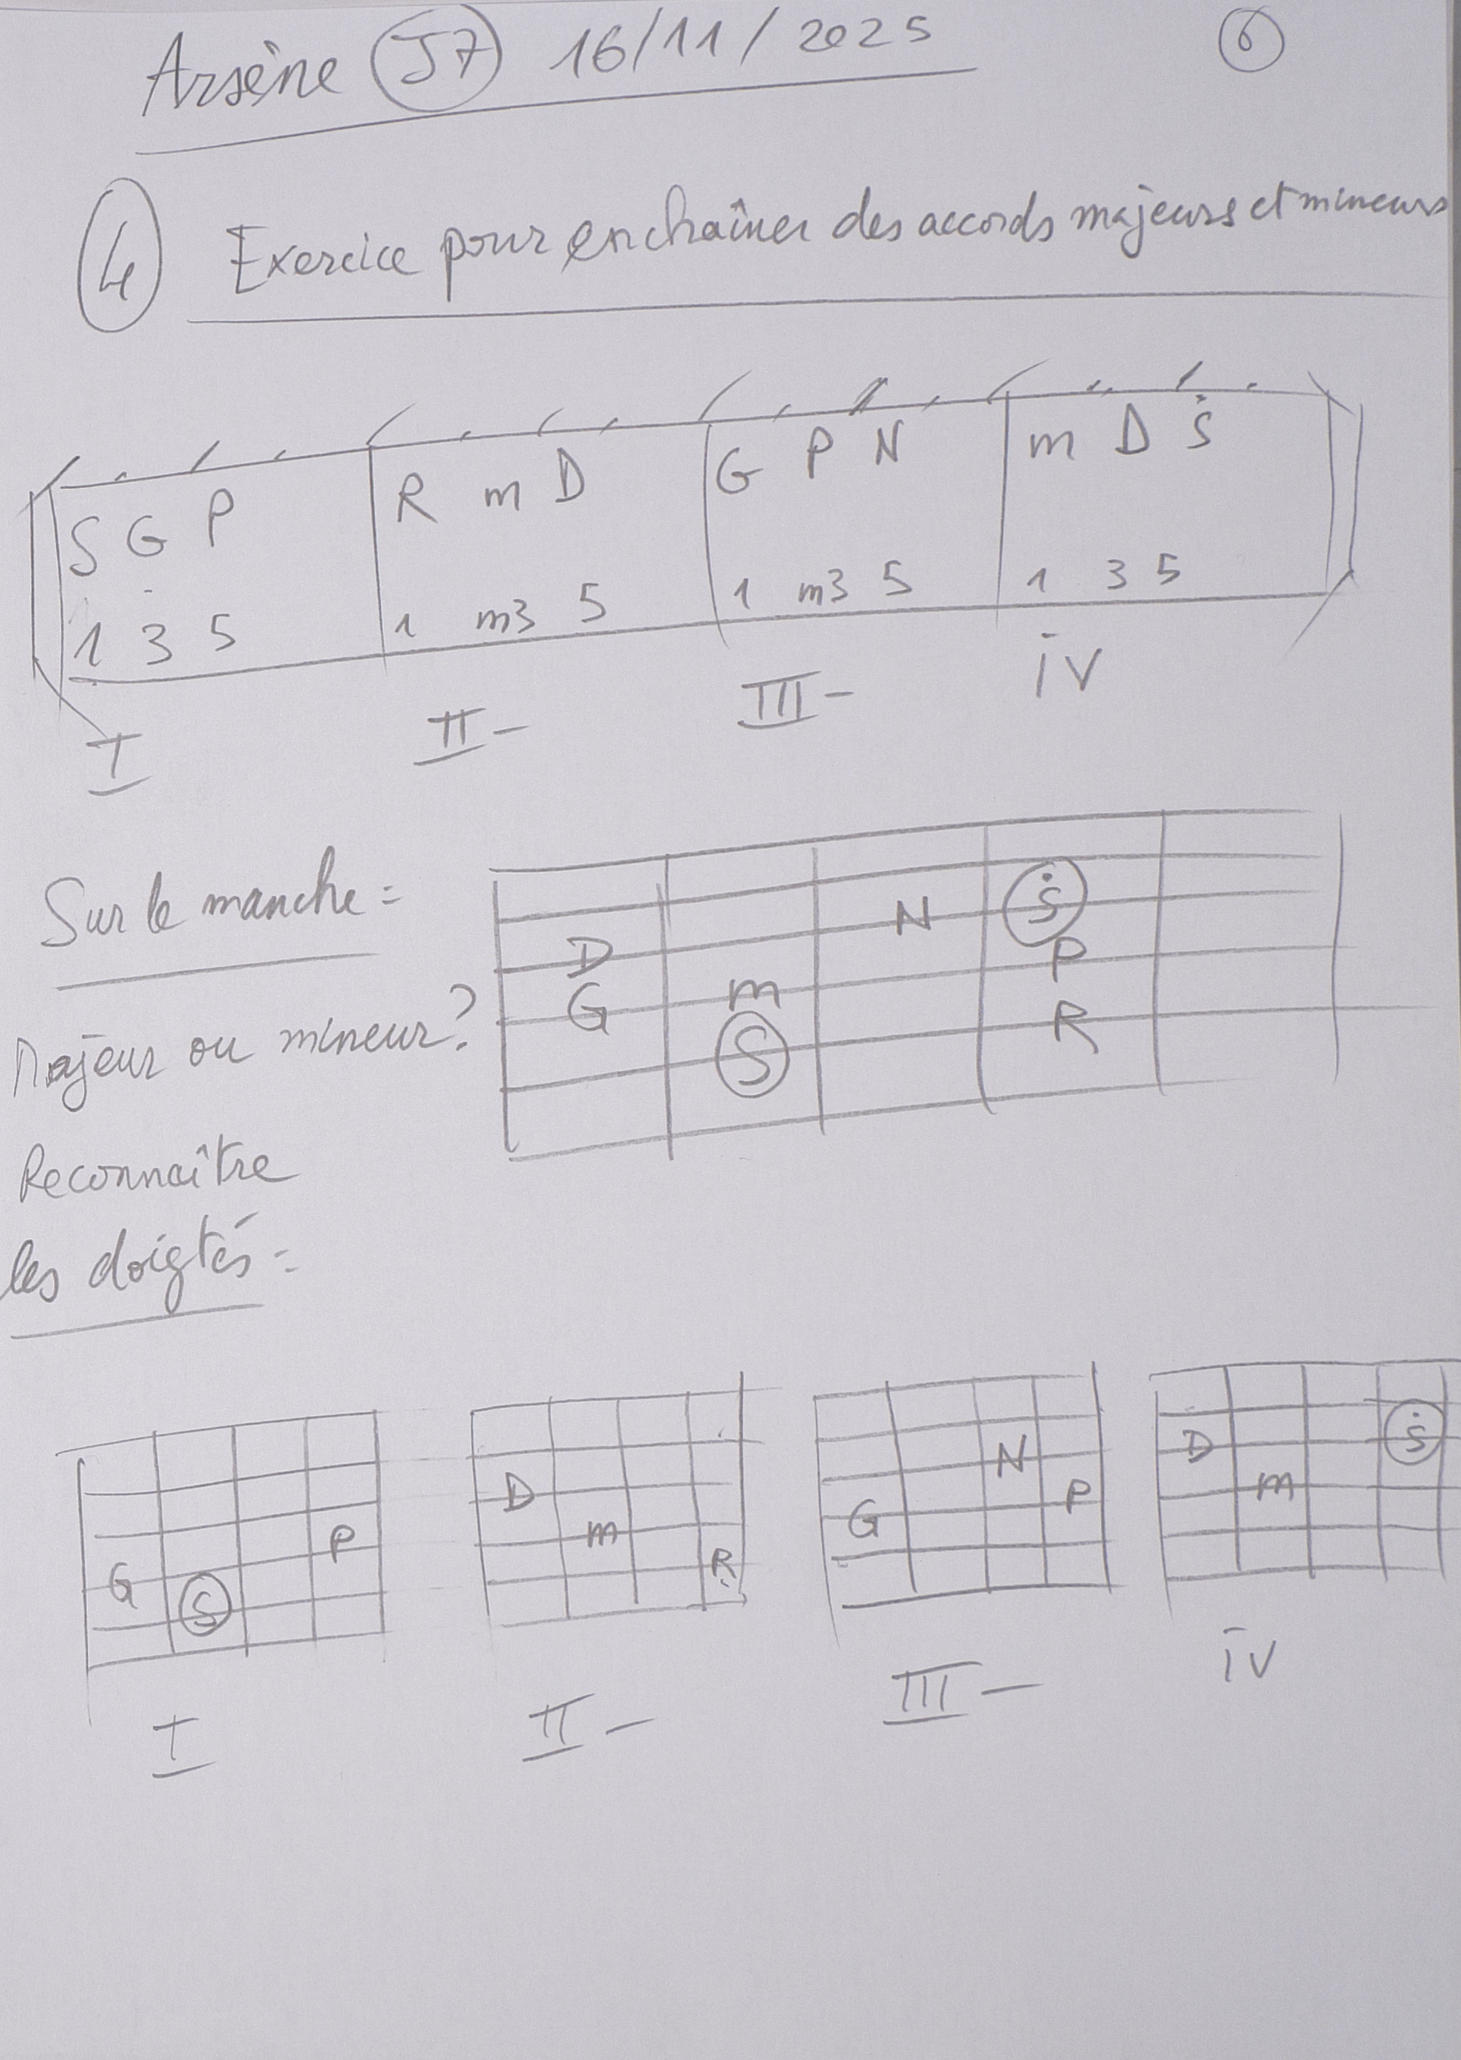 Arsène J7 16/11/2025 6
4 Exercice pour enchaîner des accords majeurs et mineurs
S G P R m D G P N m D Ṡ
1 3 5 1 m3 5 1 m3 5 1 3 5
I II- III- IV
Sur le manche =
N Ṡ
D P
G m R
S
Majeur ou mineur?
Reconnaître
les doigtés =
G S P
D m R
G N P
D m Ṡ
I II- III- IV